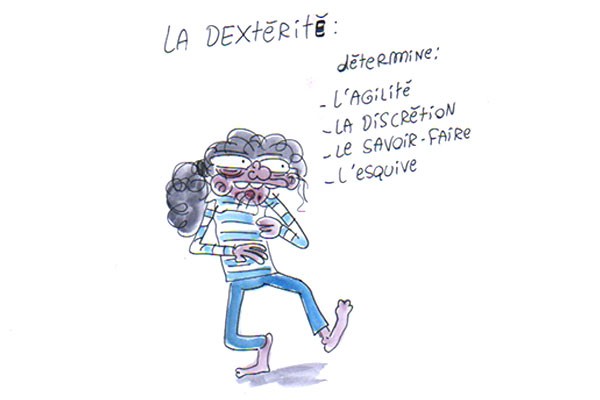 LA DEXtéRité :
détermine :
- L'AGilité
- LA DiscRétioN
- LE SAVoiR-FAiRE
- L'esquive